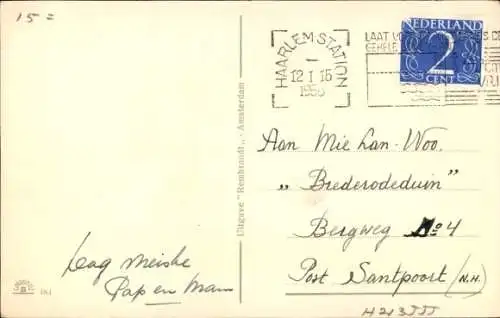 15=
NEDERLAND
2
CENT
HAARLEM STATION
12 I 16
1950
LAAT
GEHELE
Uitgave "Rembrandt" - Amsterdam
Aan Mie Lan-Woo.
„Brederodeduin"
Bergweg No 4
Post Santpoort (N.H.)
Dag meiske
Pap en Mam
H213555